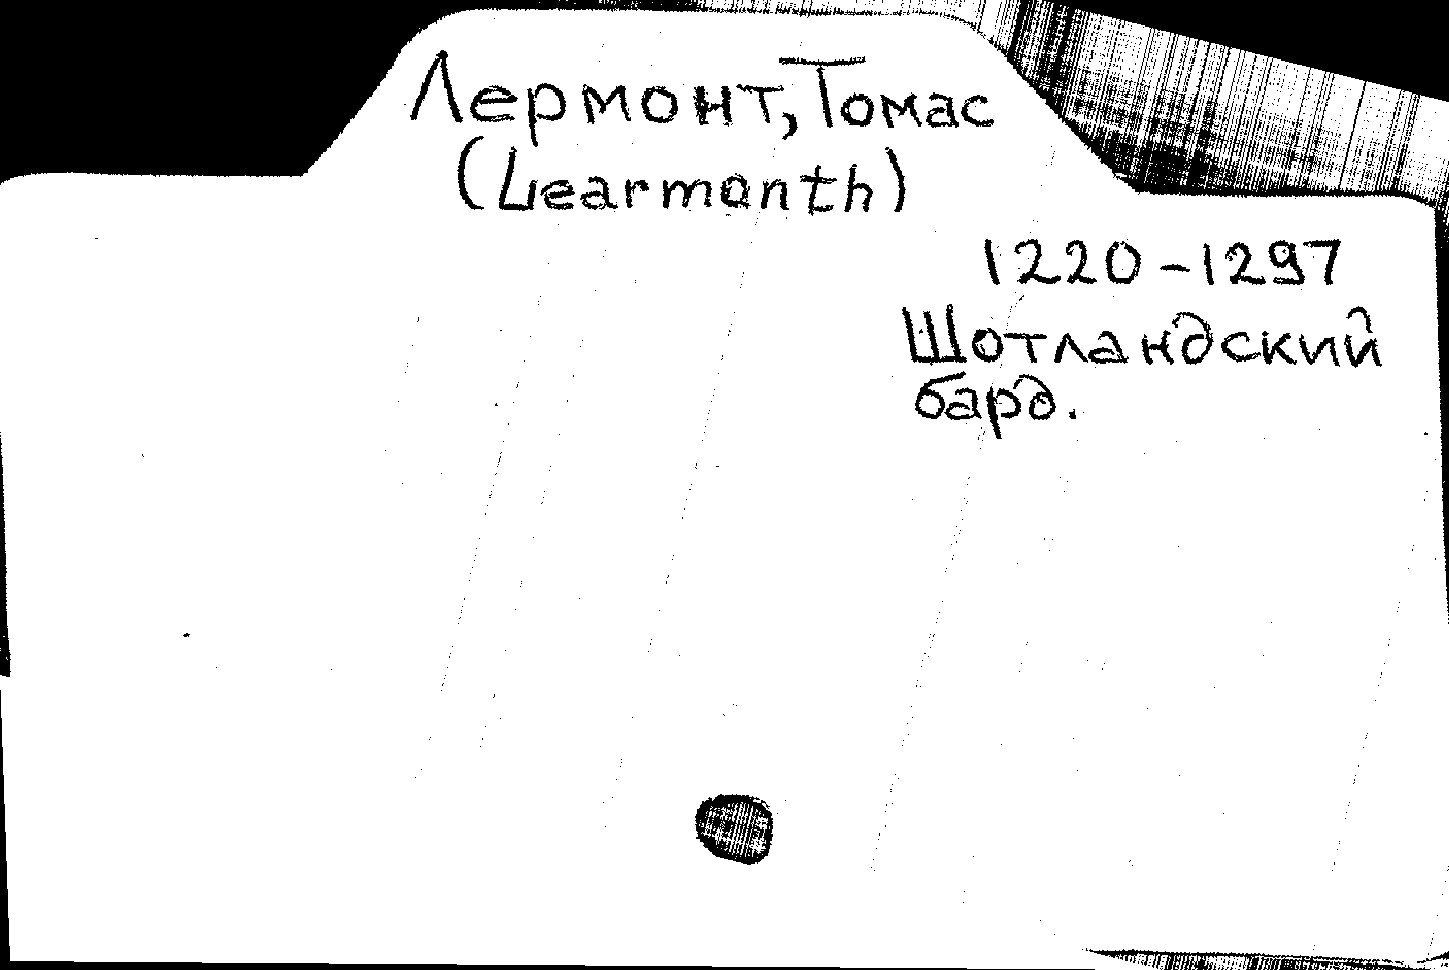 Лермонт, Томас
(Learmonth)
1220-1297
Шотландский
бард.